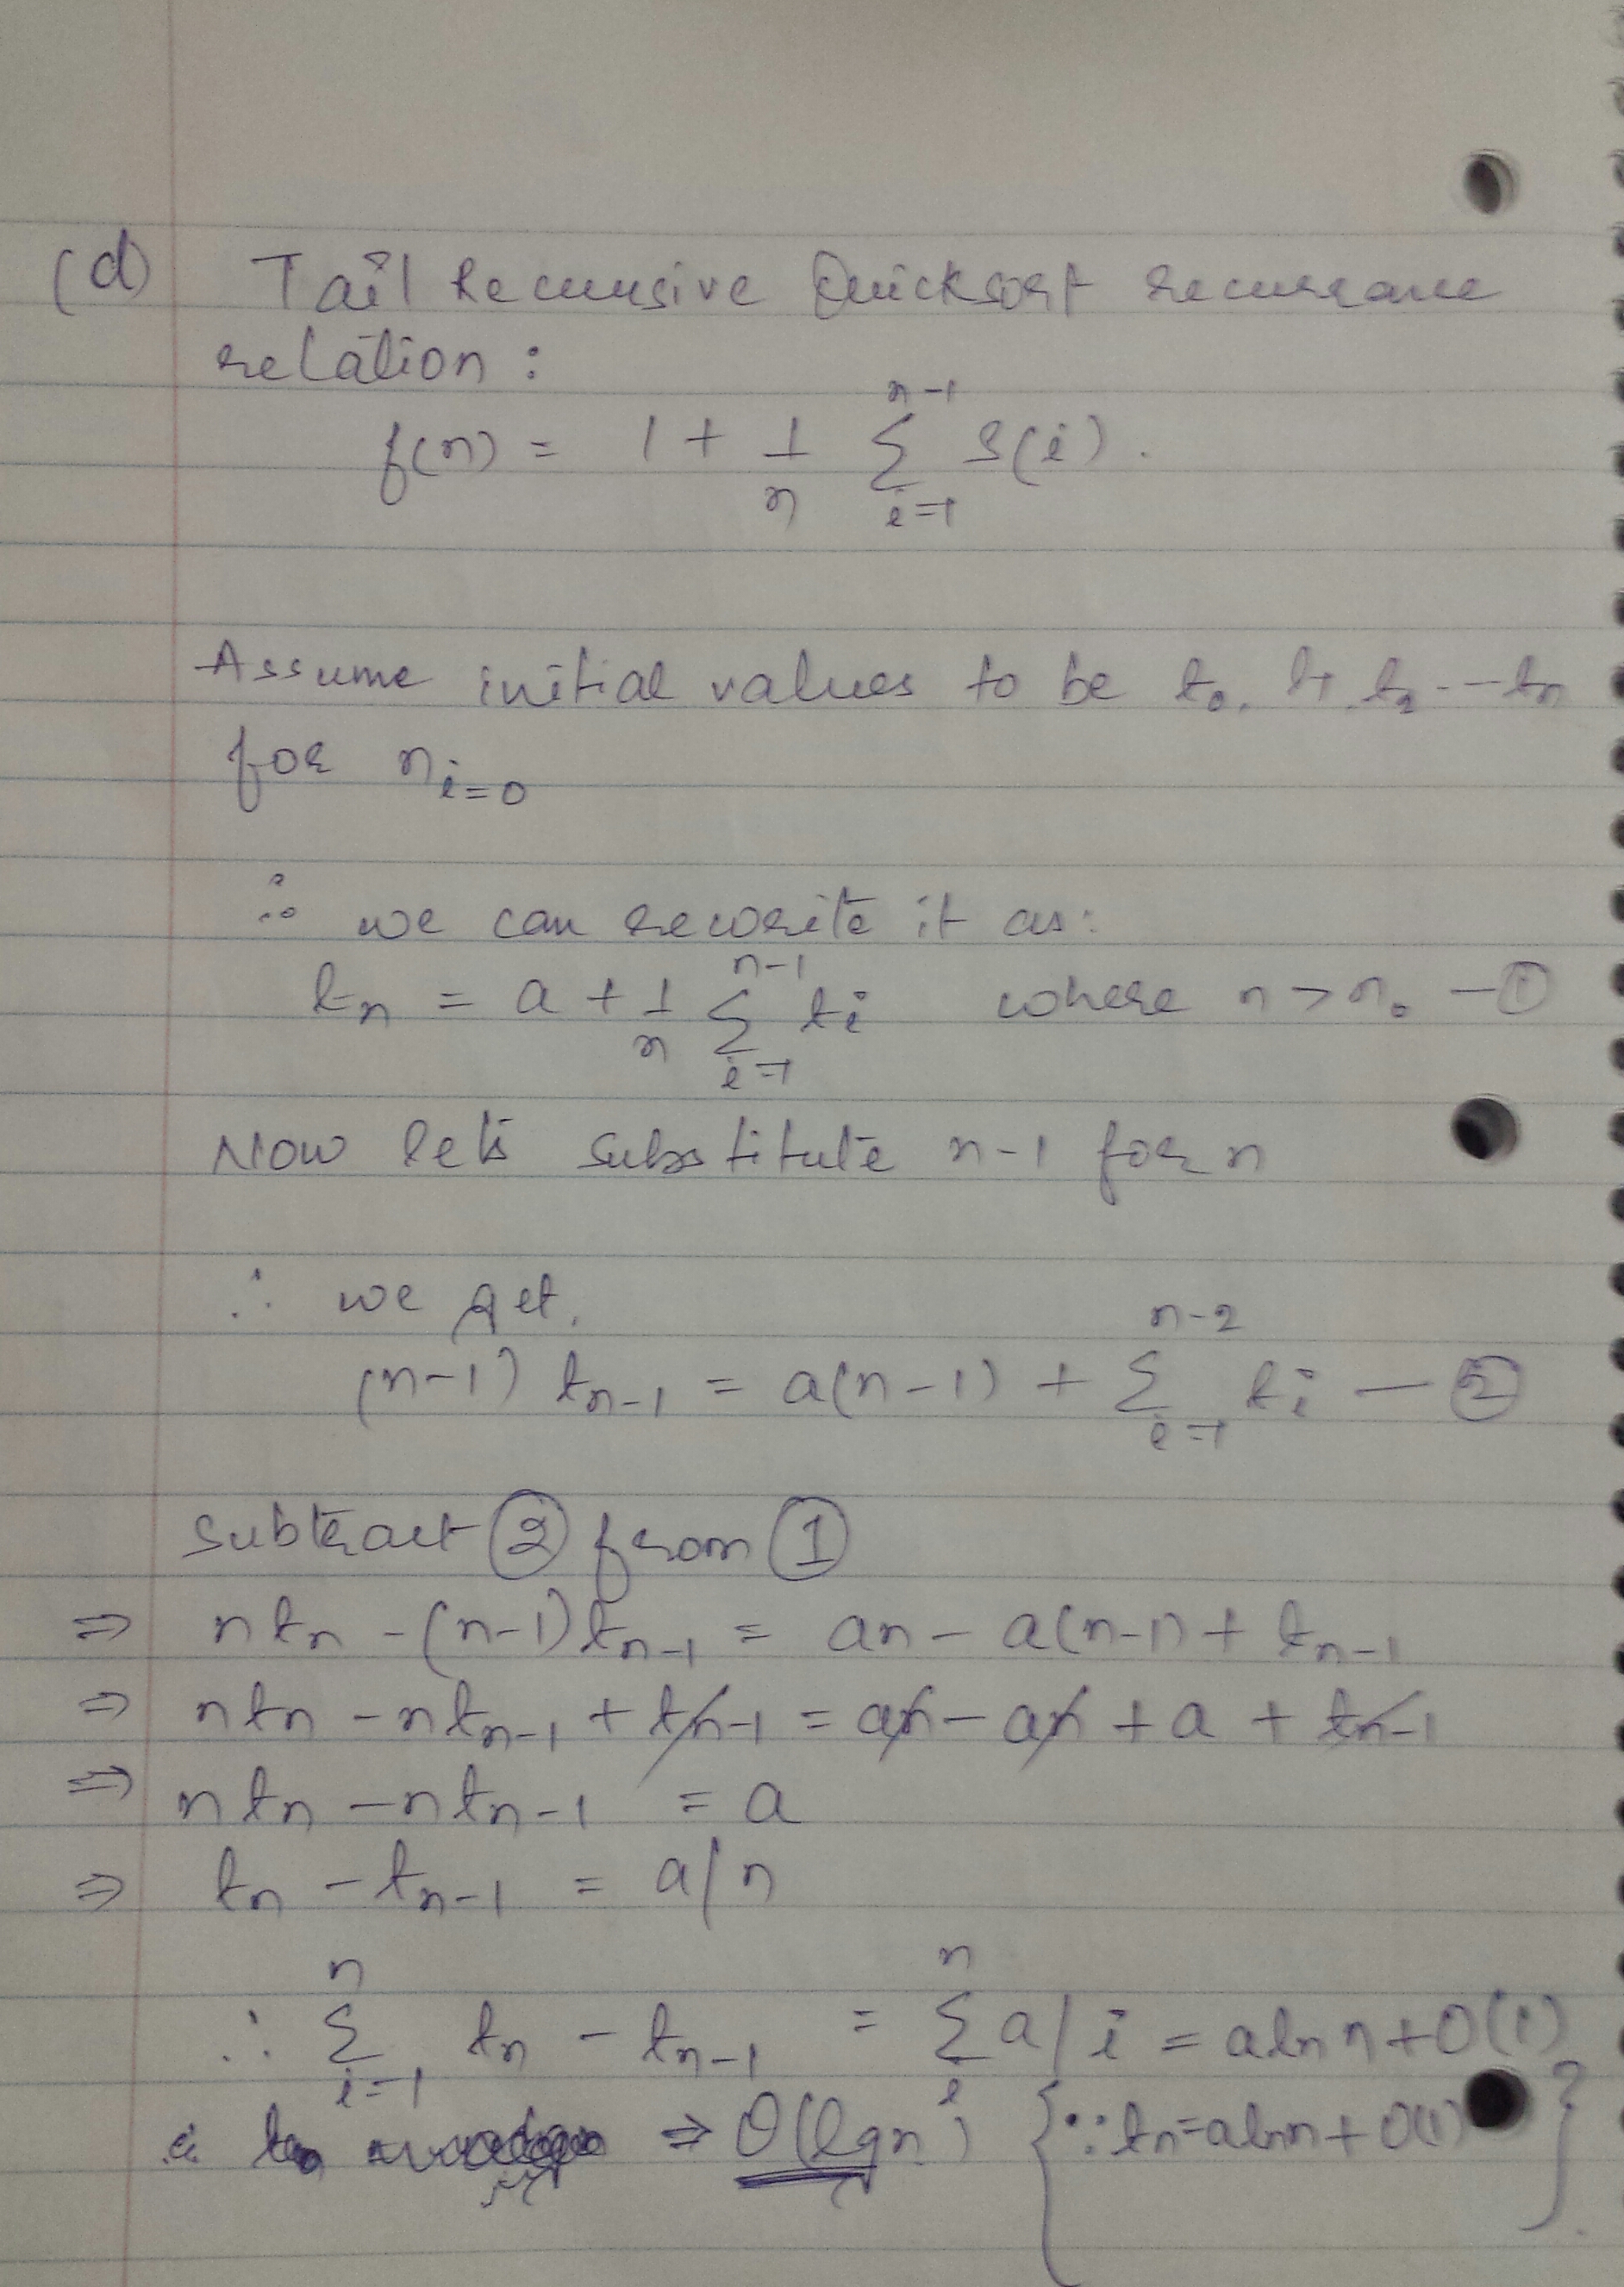 (d) Tail Recursive Quicksort recurrance
relation :
f(n) = 1 + 1/n Σ_{i=1}^{n-1} S(i).
Assume initial values to be t₀, t₁, t₂ - - tn
for n_{i=0}
∴ we can rewrite it as:
tn = a + 1/n Σ_{i=1}^{n-1} ti where n > n₀ — ①
Now let's substitute n-1 for n
∴ we get,
(n-1) t_{n-1} = a(n-1) + Σ_{i=1}^{n-2} ti — ②
Subtract ② from ①
⇒ ntn - (n-1)t_{n-1} = an - a(n-1) + t_{n-1}
⇒ ntn - nt_{n-1} + t_{n-1} = an - an + a + t_{n-1}
⇒ ntn - nt_{n-1} = a
⇒ tn - t_{n-1} = a/n
∴ Σ_{i=1}^{n} tn - t_{n-1} = Σ_{i}^{n} a/i = a ln n + O(1)
⇒ θ(lgn) {∵ tn = a ln n + O(1)}